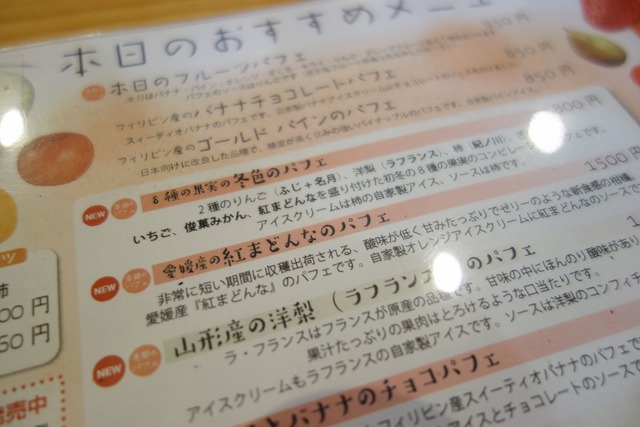 本日のおすすめメニュー
本日のフルーツパフェ 950円
フィリピン産のバナナチョコレートパフェ 850円
スウィーティオバナナのパフェです。自家製バナナアイスクリームにチョコレートのソースをかけました。
フィリピン産のゴールドパインのパフェ 850円
日本向けに改良した品種で、糖度が高く甘みの強いパイナップルのパフェです。自家製パインアイス。
NEW 8種の果実の冬色のパフェ 800円
2種のりんご(ふじ+名月)、洋梨(ラフランス)、柿(紀ノ川)、
いちご、俊葉みかん、紅まどんなを盛り付けた初冬の8種の果実のコンビレー
アイスクリームは柿の自家製アイス、ソースは柿です。
NEW 愛媛産の紅まどんなのパフェ 1500円
非常に短い期間に収穫出荷される、酸味が低く甘みたっぷりでゼリーのような新食感の柑橘、
愛媛産『紅まどんな』のパフェです。自家製オレンジアイスクリームに紅まどんなのソースで
NEW 山形産の洋梨(ラフランス)のパフェ
ラ・フランスはフランスが原産の品種です。甘味の中にほんのり酸味があり
果汁たっぷりの果肉はとろけるような口当たりです。
アイスクリームもラフランスの自家製アイスです。ソースは洋梨のコンフィチ
バナナのチョコパフェ
フィリピン産スイーティオバナナのパフェで
アイスとチョコレートのソースで
柿
00円
50円
発売中